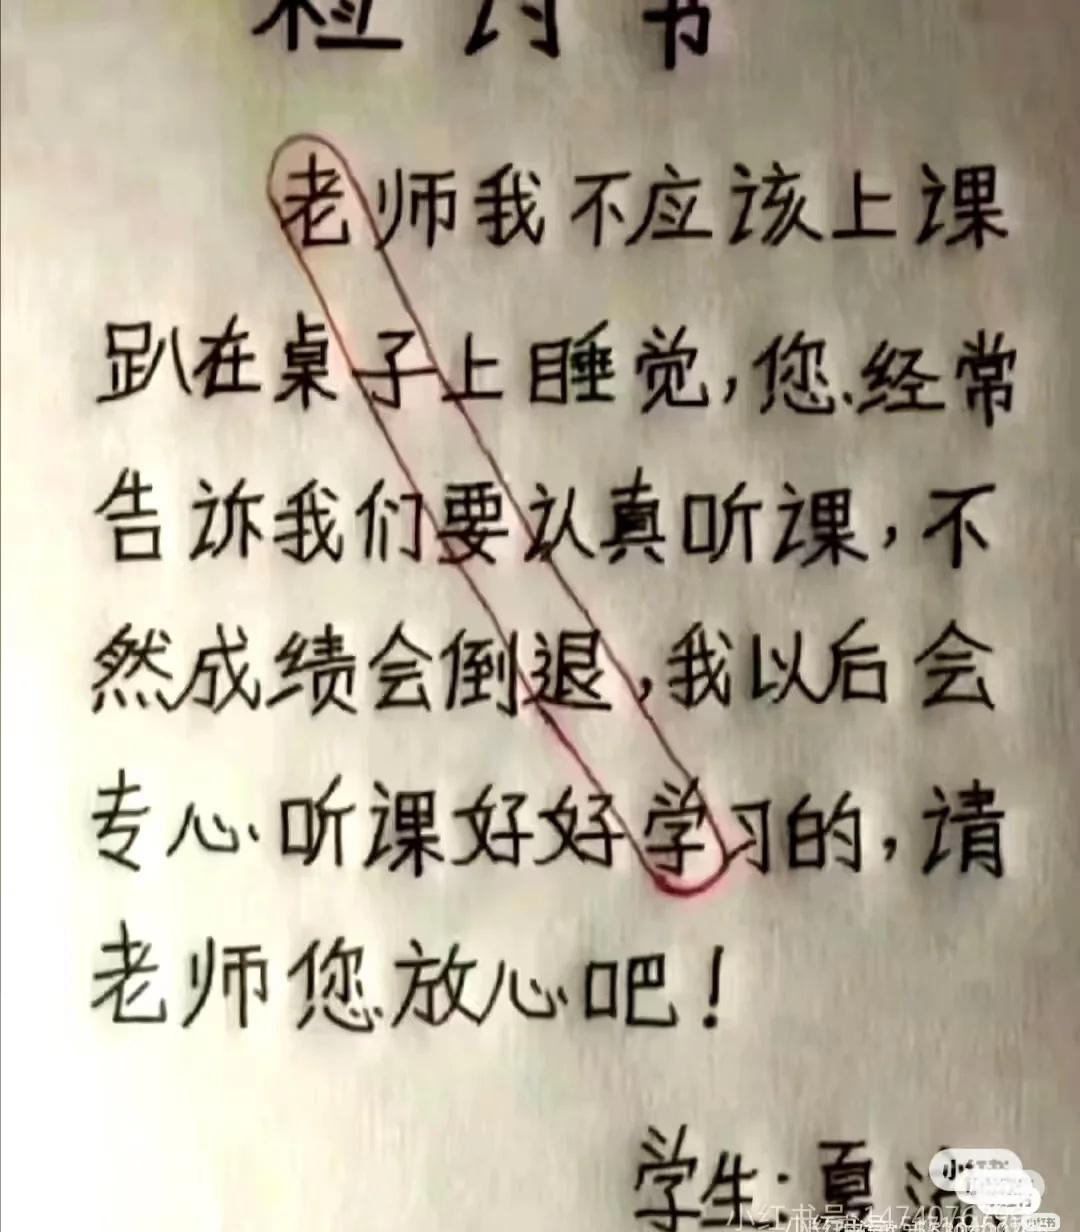 检讨书
老师我不应该上课
趴在桌子上睡觉,您经常
告诉我们要认真听课,不
然成绩会倒退,我以后会
专心听课好好学习的,请
老师您放心吧!
学生:夏